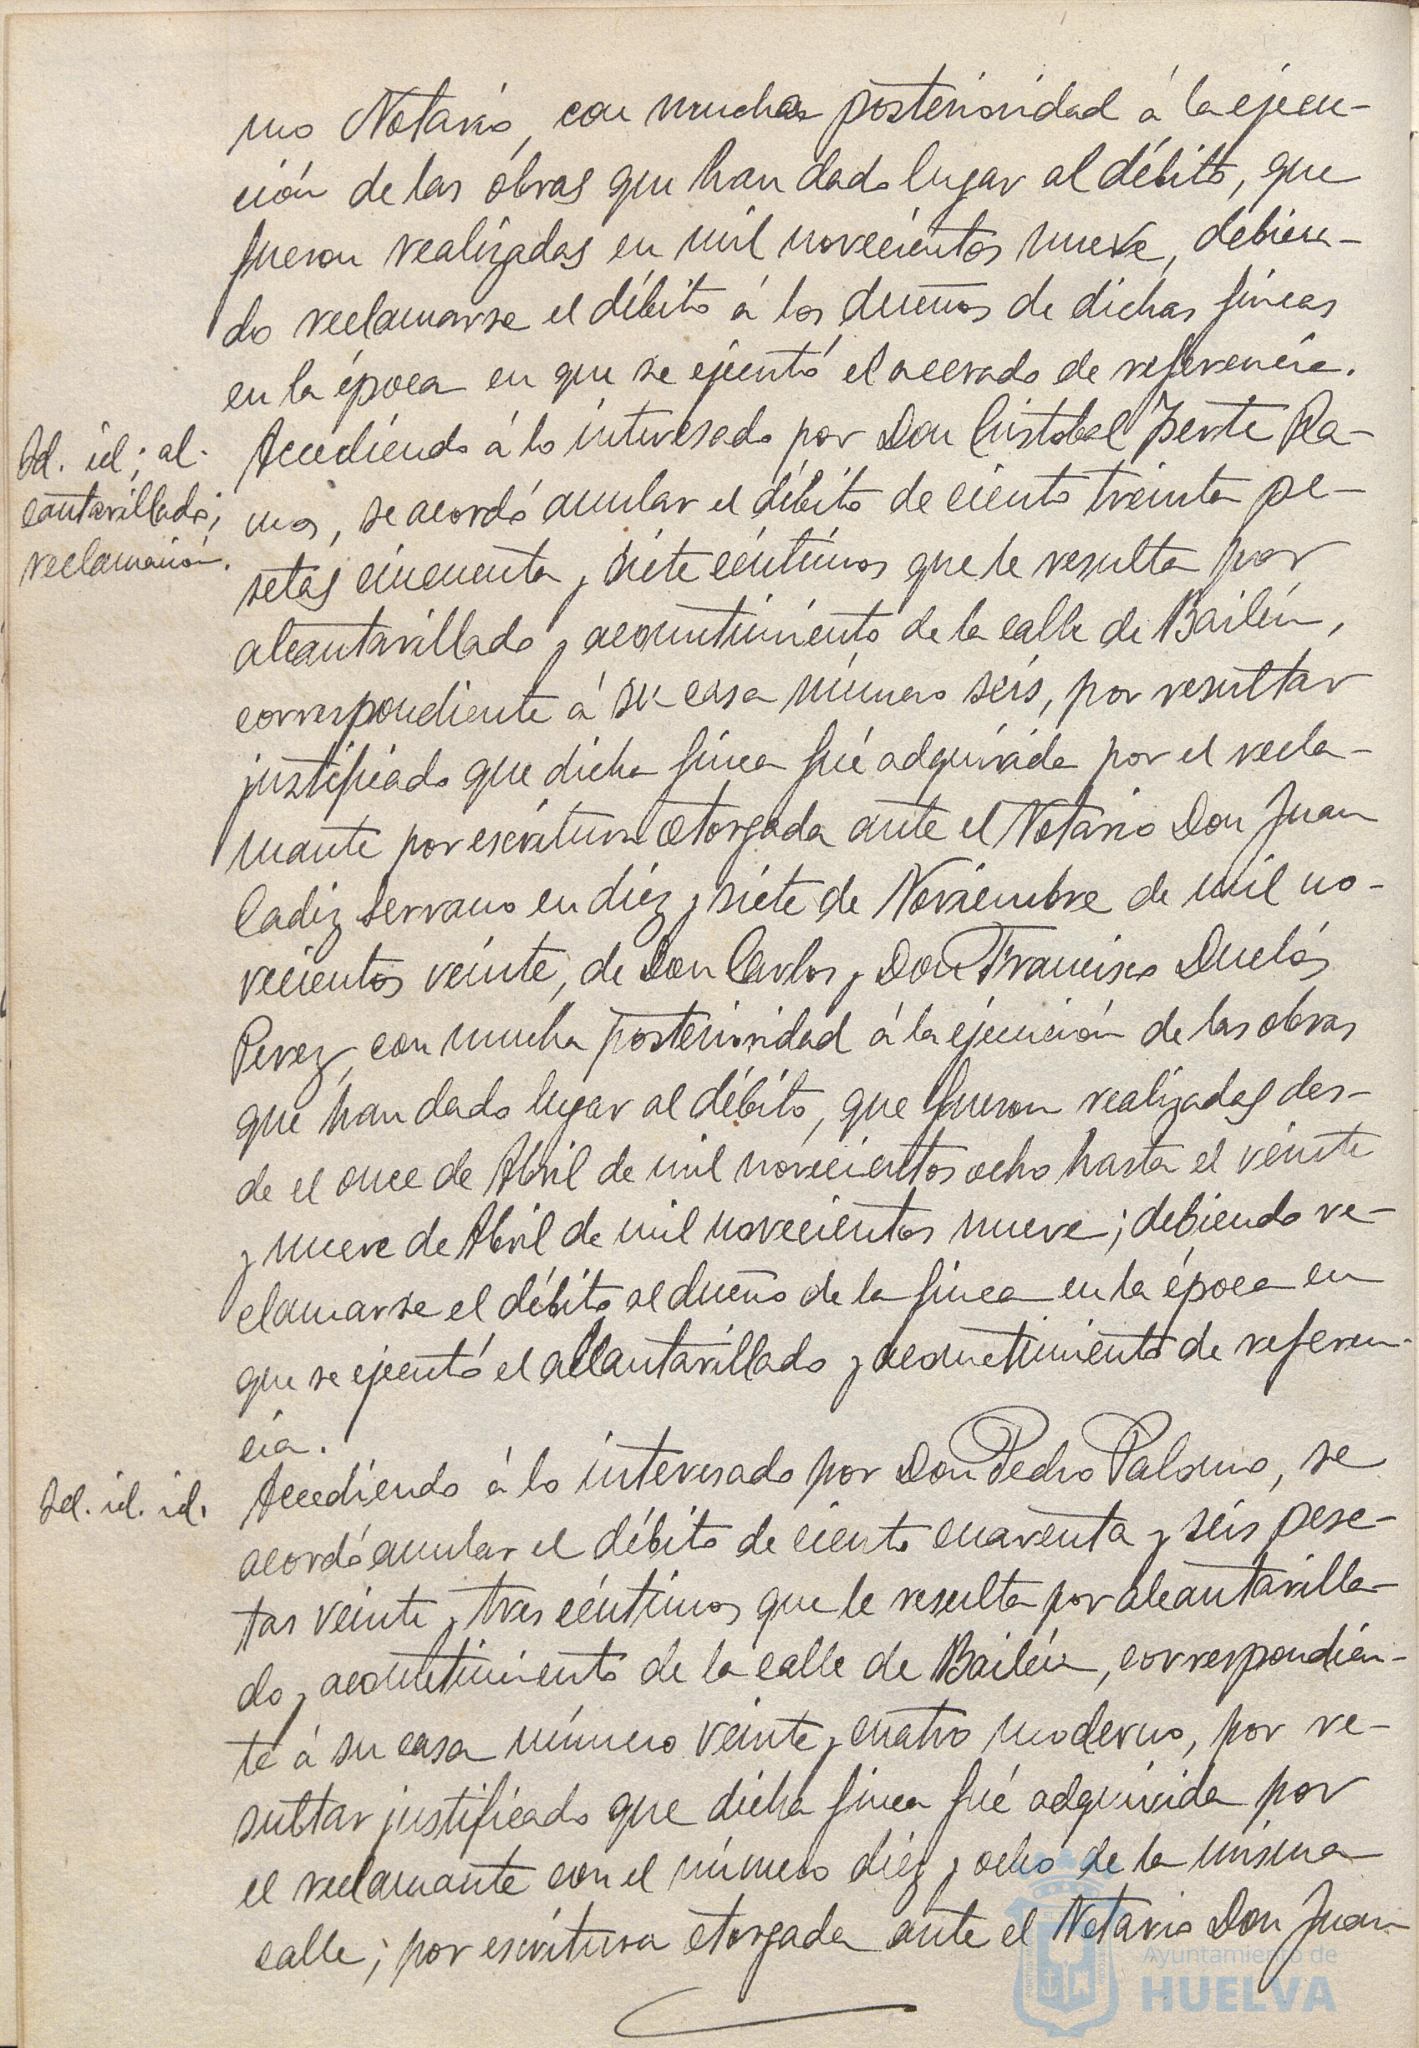 mo Notario, con mucha posterioridad á la ejecu-
ción de las obras que han dado lugar al débito, que
fueron realizadas en mil novecientos nueve, debien-
do reclamarse el débito á los dueños de dichas fincas
en la época en que se ejecutó el acerado de referencia.
Id. id; al-
cantarillado;
reclamación.
Accediendo á lo interesado por Don Cristobal Ra-
mos, se acordó anular el débito de ciento treinta pe-
setas cincuenta y siete céntimos que le resulta por
alcantarillado y acometimiento de la calle de Bailén,
correspondiente á su casa número seis, por resultar
justificado que dicha finca fué adquirida por el recla-
mante por escritura otorgada ante el Notario Don Juan
Cadiz Serrano en diez y siete de Noviembre de mil no-
vecientos veinte, de Don Carlos y Don Francisco Duclós
Perez, con mucha posterioridad á la ejecución de las obras
que han dado lugar al débito, que fueron realizadas des-
de el once de Abril de mil novecientos ocho hasta el veinte
y nueve de Abril de mil novecientos nueve; debiendo re-
clamarse el débito al dueño de la finca en la época en
que se ejecutó el alcantarillado y acometimiento de referen-
cia.
Id. id. id.
Accediendo á lo interesado por Don Pedro Palomo, se
acordó anular el débito de ciento cuarenta y seis pese-
tas veinte y tres céntimos que le resulta por alcantarilla-
do y acometimiento de la calle de Bailén, correspondien-
te á su casa número veinte y cuatro moderno, por re-
sultar justificado que dicha finca fué adquirida por
el reclamante con el número diez y ocho de la misma
calle; por escritura otorgada ante el Notario Don Juan
Ayuntamiento de
HUELVA